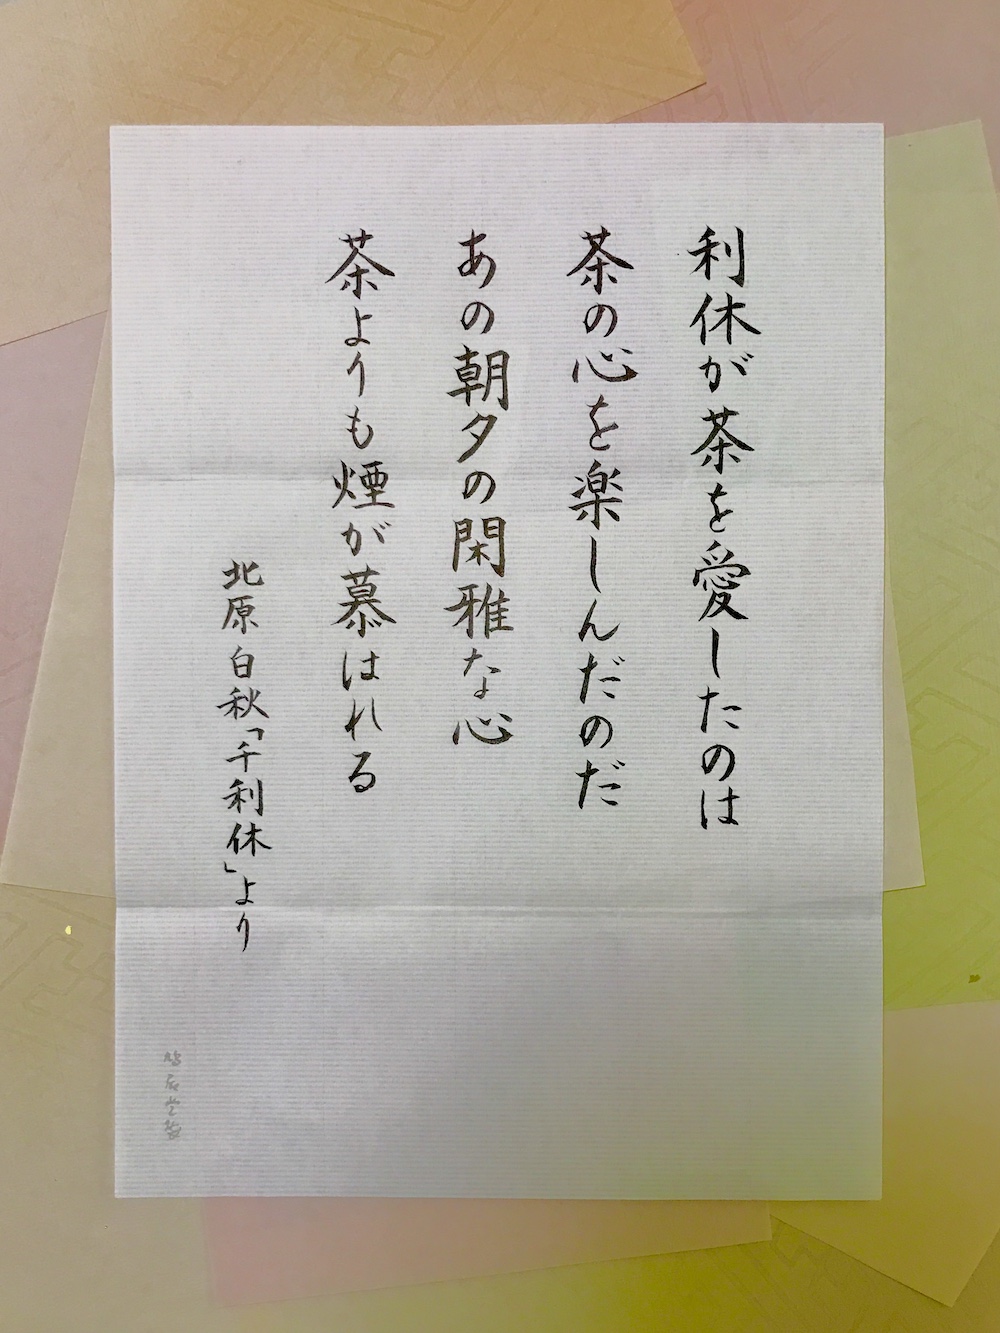 利休が茶を愛したのは
茶の心を楽しんだのだ
あの朝夕の閑雅な心
茶よりも煙が慕はれる
北原白秋「千利休」より
鳩居堂製